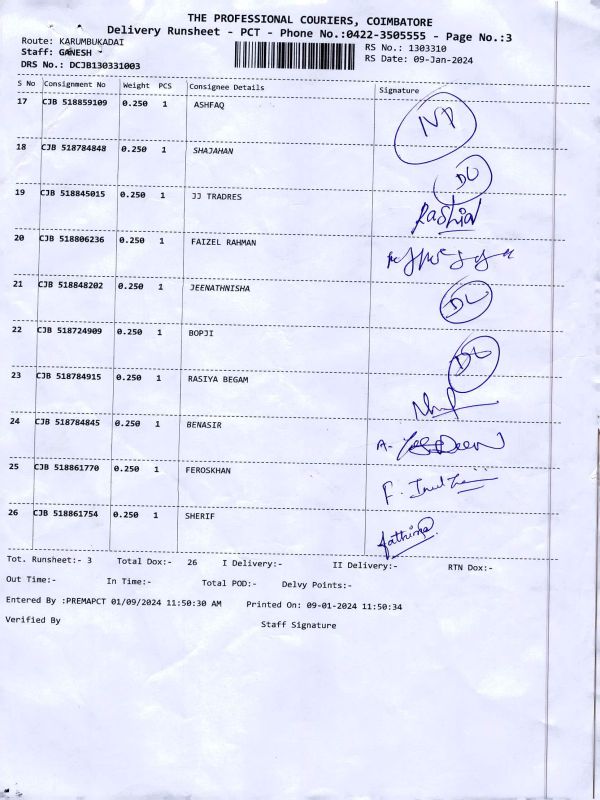 THE PROFESSIONAL COURIERS, COIMBATORE
Delivery Runsheet - PCT - Phone No.:0422-3505555 - Page No.:3
Route: KARUMBUKADAI RS No.: 1303310
Staff: GANESH RS Date: 09-Jan-2024
DRS No.: DCJB130331003
S No Consignment No Weight PCS Consignee Details Signature
17 CJB 518859109 0.250 1 ASHFAQ
18 CJB 518784848 0.250 1 SHAJAHAN DL
19 CJB 518845015 0.250 1 JJ TRADRES Rashid
20 CJB 518806236 0.250 1 FAIZEL RAHMAN
21 CJB 518848202 0.250 1 JEENATHNISHA DL
22 CJB 518724909 0.250 1 BOPJI DL
23 CJB 518784915 0.250 1 RASIYA BEGAM
24 CJB 518784845 0.250 1 BENASIR A.
25 CJB 518861770 0.250 1 FEROSKHAN F.
26 CJB 518861754 0.250 1 SHERIF fathima
Tot. Runsheet:- 3 Total Dox:- 26 I Delivery:- II Delivery:- RTN Dox:-
Out Time:- In Time:- Total POD:- Delvy Points:-
Entered By :PREMAPCT 01/09/2024 11:50:30 AM Printed On: 09-01-2024 11:50:34
Verified By Staff Signature